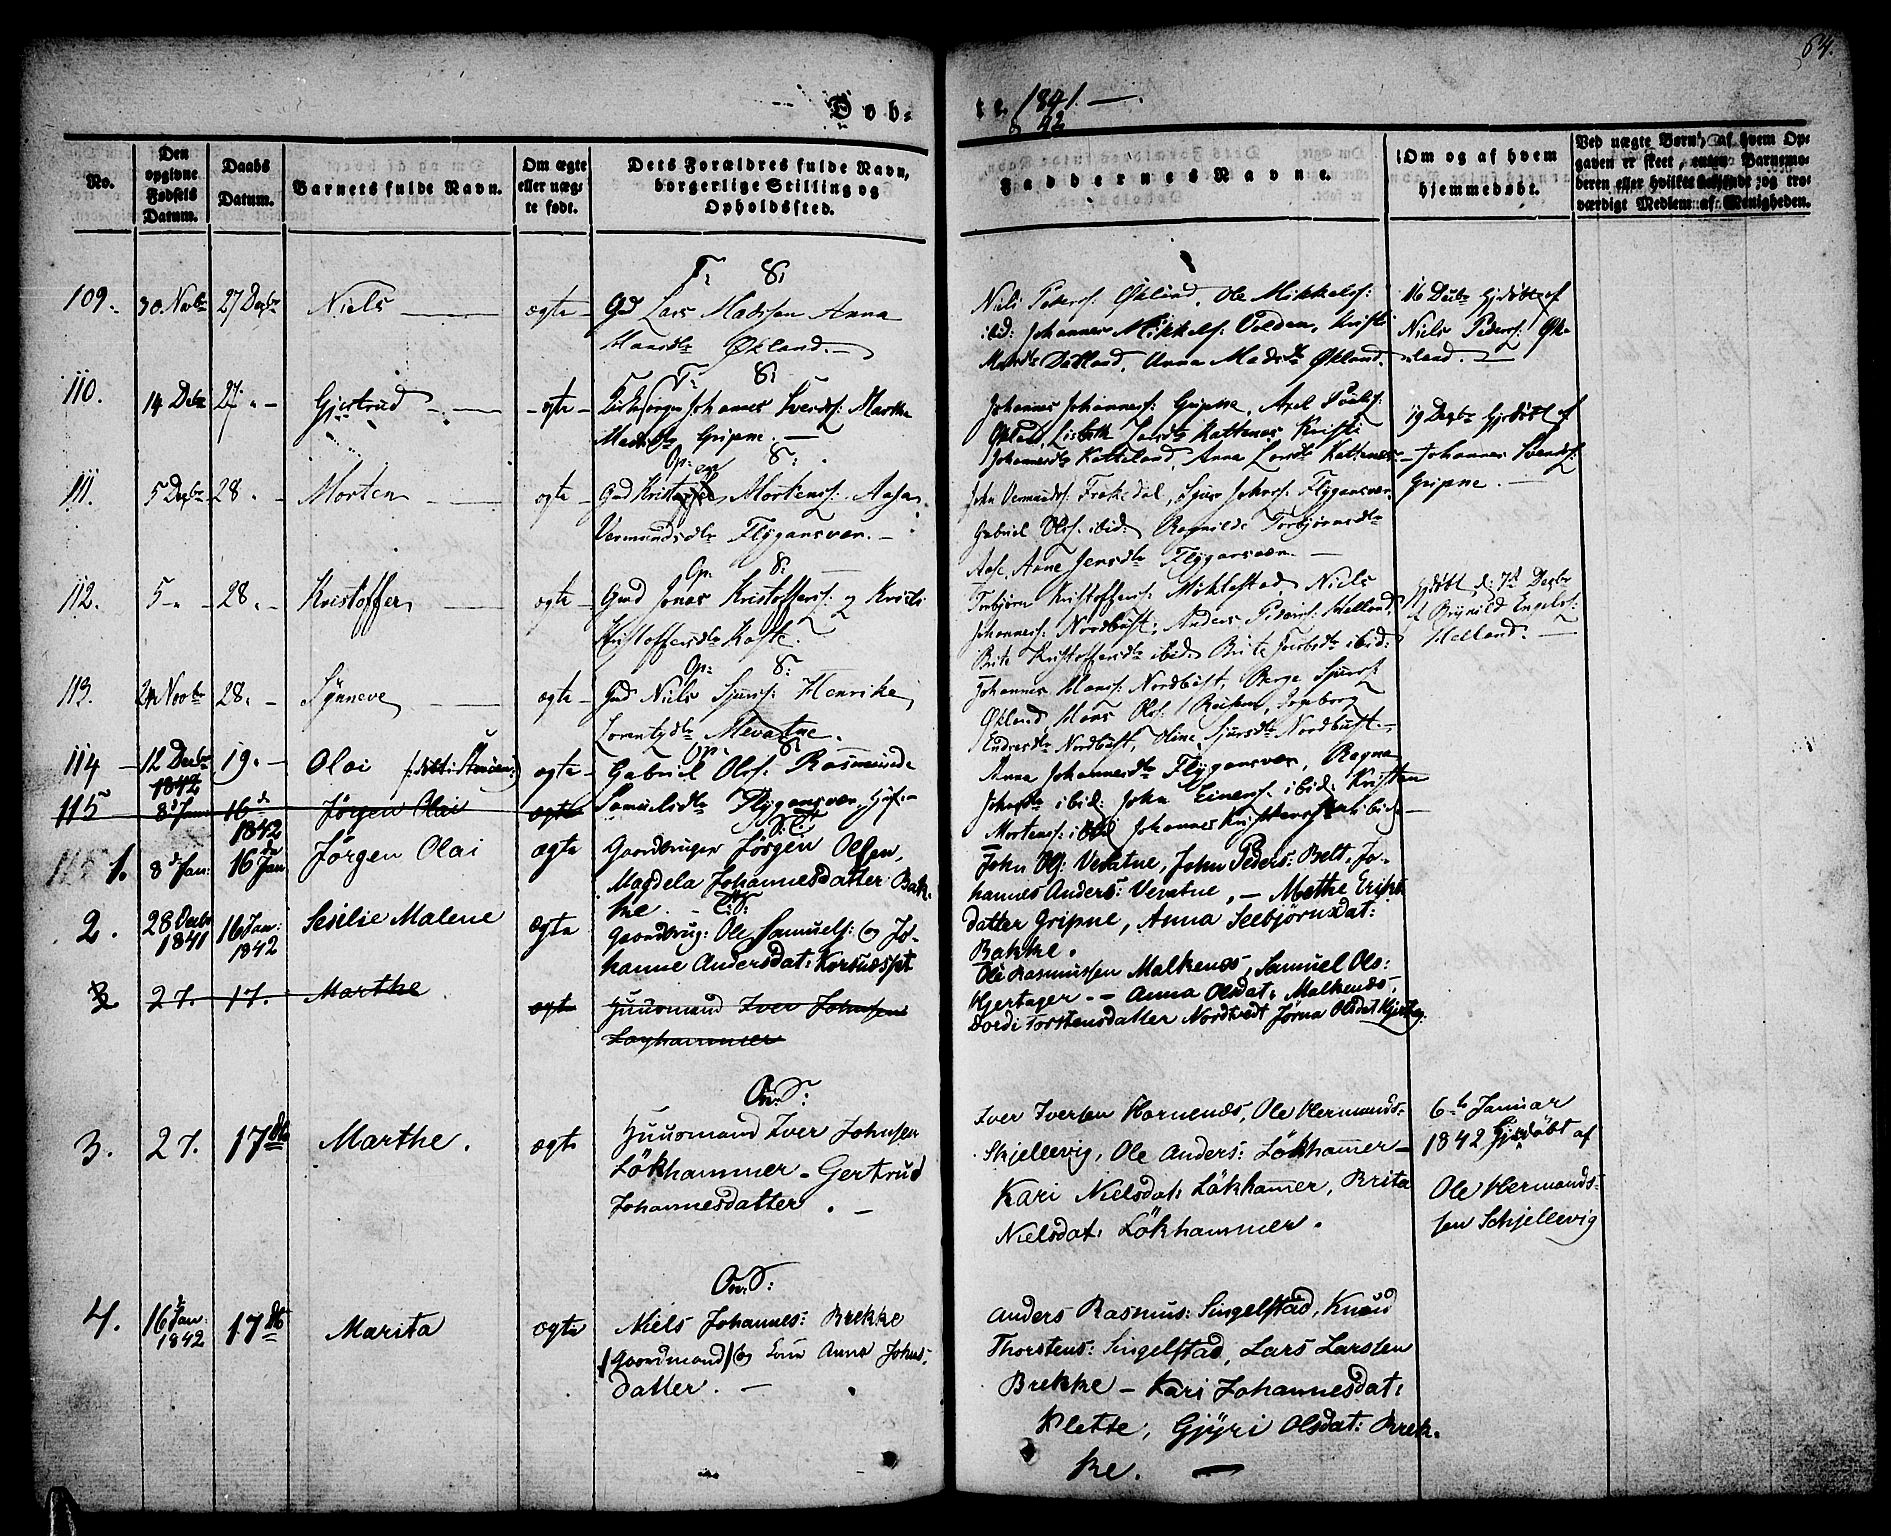 64.
Døb-
te 1841. —
& 42
No.
Den opgivne Fødsels Datum.
Daabs Datum.
Barnets fulde Navn.
Om ægte eller uægte født.
Dets Forældres fulde Navn, borgerlige Stilling og Opholdssted.
Faddernes Navne.
Om og af hvem hjemmedøbt.
Ved uægte Børn, af hvem Opgaven er skeet, enten Barnemoderen eller hvilket bekjendt og troværdigt Medlem af Menigheden.
109. 30 Novbr 27 Decbr Niels — ægte —
Gd Lars Madssen Anna
Hansdtr Økland. —
Niels Peders: Økland, Ole Mikkels:
ibid: Johannes Mikkels: Volden, Kristi
Mansdtr Dalland, Anna Madsdtr Økland.
16 Decbr Hjdøbt af
Niels Peders: Øk-
land. —
110. 14 Decbr 27. — Gjertrud — ægte —
Johannes Svends: Marthe
Madsdtr Gripne. —
Johannes Johannes: Gripne, Axel Pouls:
Økland, Lisbeth Larsdtr Kattenes Kristi
Johannesdtr Katteland, Anna Larsdtr Kattenes
19 Decbr Hjdøbt af
Johannes Svends:
Gripne. —
111. 5 Decbr 28. — Morten — ægte —
Gmd Kristoffer Mortens: Aasa
Vermundsdtr Flygansvær. —
John Vermunds: Frakedal, Sjur Johs: Flygansvær
Gabriel Ols: ibid: Ragnilde Torbjørnsdtr
Aase, Anne Jensdtr Flygansvær. —
112. 5 — 28. — Kristoffer — ægte —
Gmd Jonas Kristoffers: og Kristi
Kristoffersdtr Kaste.
Torbjørn Kristoffers: Miklestad, Niels
Johannes: Nordbust, Anders Peders: Helland,
Brite Kristoffersdtr ibid: Brite Jacobsdtr ibid:
Hjdøbt d: 7d Decbr
af Brynild Engels:
Helland. —
113. 24 Novbr 28. — Synneve — ægte —
Gmd Niels Sjurs: Henrike
Lorentzdtr Mevatne.
Johannes Hans: Nordbust, Børge Sjurs:
Økland, Hans Ols: Ingeborg
Endresdtr Nordbust, Oline Sjursdtr Nordbust. —
114 — 12 Decbr 19. — Olai ægte —
Gabriel Ols: Rasmine
Samuelsdtr Flygansvær,
Anna Johannesdtr Flygansvær, Ragna
Johsdtr ibid: John Einers: ibid: Kristen
Mortens: ibid Johannes ibid: —
115 1842 8d Jan 16d Jørgen Olai ægte
1. 8d Jan: 1842 16de Jan Jørgen Olai ægte
Gaardbruger Jørgen Olsen,
Magdela Johannesdatter Bak-
ke. —
John Ol: Vevatne, John Peders: Belt, Jo-
hannes Anders: Vevatne, — Methe Eriks
datter Gripne, Anna Seebjørnsdat:
Bakke.
2. 28 Decbr 1841 16 Jan: 1842 Sesilie Malene ægte
Gaardbrug: Ole Samuels: og Jo-
hanne Andersdat:
Ole Rasmussen Malkenes, Samuel Ols:
Hjertager — Anna Olsdat: Malkenes,
Dordi Torstensdatter Nordtvedt Jørna Olsdat Hjertag.
3 27. 17. Marthe ægte Huusmand Iver Johnsen
Løghammer
3. 27. 17de Marthe. ægte
Huusmand Iver Johnsen
Løkhammer — Gertrud
Johannesdatter. —
Iver Iversen Hornenes, Ole Hermands:
Skjellevig, Ole Anders: Løkhammer —
Kari Nielsdat: Løkhammer, Brita
Nielsdat: Løkhammer.
6te Januar
1842 Hjdøbt af
Ole Hermands-
sen Schjellevig
4. 16d Jan: 1842 17de Marita ægte
Niels Johannes: Brekke
(Gaardmand) og Kone Anna Johns-
datter. —
Anders Rasmus: Singelstad, Knud
Thorstens: Singelstad, Lars Larssen
Brekke — Kari Johannesdat:
Klette, Gjyri Olsdat: Brek-
ke. —